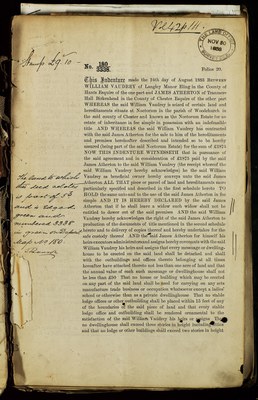 Vol 42 p 111
Stamp £9.10
NOV 30
No. 150
3338
Folios 20.
This Indenture made the 24th day of August 1893 BETWEEN
WILLIAM VAUDREY of Langley Manor Fling in the County of
Herts Esquire of the one part and JAMES ATHERTON of Tranmere
Hall Birkenhead in the County of Chester Esquire of the other part
WHEREAS the said William Vaudrey is seized of certain land and
hereditaments situate at Noctorum in the parish of Woodchurch in
the said county of Chester and known as the Noctorum Estate for an
estate of inheritance in fee simple in possession with an indefeasible
title AND WHEREAS the said William Vaudrey has contracted
with the said James Atherton for the sale to him of the hereditaments
and premises hereinafter described and intended to be hereby
assured (being part of the said Noctorum Estate) for the sum of
NOW THIS INDENTURE WITNESSETH that in pursuance of
the said agreement and in consideration of paid by the said
James Atherton to the said William Vaudrey (the receipt whereof the
said William Vaudrey hereby acknowledges) he the said William
Vaudrey as beneficial owner hereby conveys unto the said James
Atherton ALL THAT piece or parcel of land and hereditaments more
particularly specified and described in the first schedule hereto TO
HOLD the same unto and to the use of the said James Atherton in fee
simple AND IT IS HEREBY DECLARED by the said James
Atherton that if he shall leave a widow such widow shall not be
entitled to dower out of the said premises AND the said William
Vaudrey hereby acknowledges the right of the said James Atherton to
production of the documents of title mentioned in the second schedule
hereto and to delivery of copies thereof and hereby undertakes for the
safe custody thereof AND the said James Atherton for himself his
heirs executors administrators and assigns hereby covenants with the said
William Vaudrey his heirs and assigns that every messuage or dwelling-
house to be erected on the said land shall be detached and shall
with the outbuildings and offices thereto belonging at all times
hereafter have attached thereto not less than one acre of land and that
the annual value of each such messuage or dwellinghouse shall not
be less than £50 That no house or building which may be erected
on any part of the said land shall be used for carrying on any arts
manufacture trade business or occupation whatsoever except a ladies'
school or otherwise than as a private dwellinghouse That no stable
lodge office or other outbuilding shall be placed within 15 feet of any
of the boundaries of the said piece of land and that every stable
lodge office and outbuilding shall be rendered ornamental to the
satisfaction of the said William Vaudrey his heirs or assigns That
no dwellinghouse shall exceed three stories in height
and that no lodge or other buildings shall exceed two stories in height
The land to which
this deed relates
is parcel 5 &
and is edged
green and
numbered 3338
in green on
Map No 150